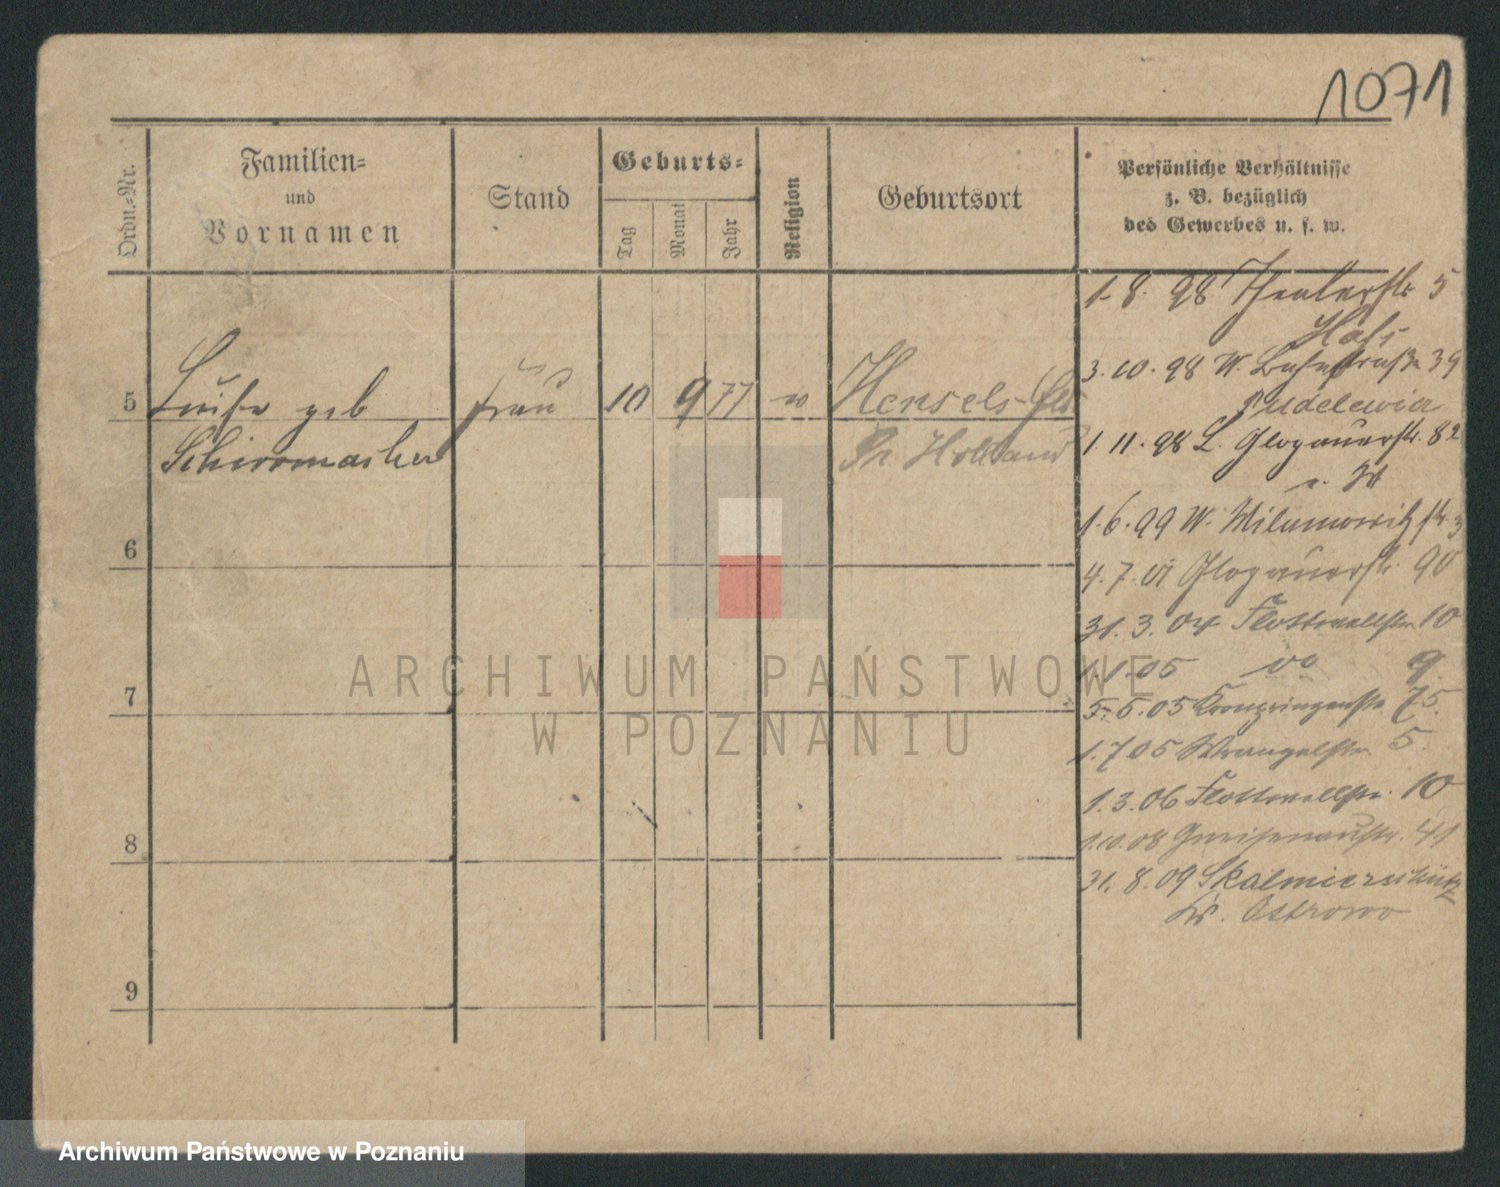 1071
Ordn.-Nr.
Familien-
und
Vornamen
Stand
Geburts-
Tag
Monat
Jahr
Religion
Geburtsort
Persönliche Verhältnisse
z. B. bezüglich
des Gewerbes u. s. w.
1.8.98 Theaterstr 5
3.10.98 W. 39
5 Luise geb Frau 10 9 77 Hensels
Pudelewicz
1.11.98 L. Glogauerstr. 82
Pr Holland
1.6.99 W. Wilamowitzstr. 3
6
4.7.01 Glogauerstr. 90
31.3.04 Flottwellstr. 10
1.1.05 do 9.
7
5.5.05 Kronprinzenstr. 75.
1.7.05 Wrangelstr. 5.
1.3.06 Flottwellstr. 10
8
1.10.08 Gneisenaustr. 41
31.8.09 Skalmierschütz
Kr. Ostrowo
9
ARCHIWUM PAŃSTWOWE
W POZNANIU
Archiwum Państwowe w Poznaniu